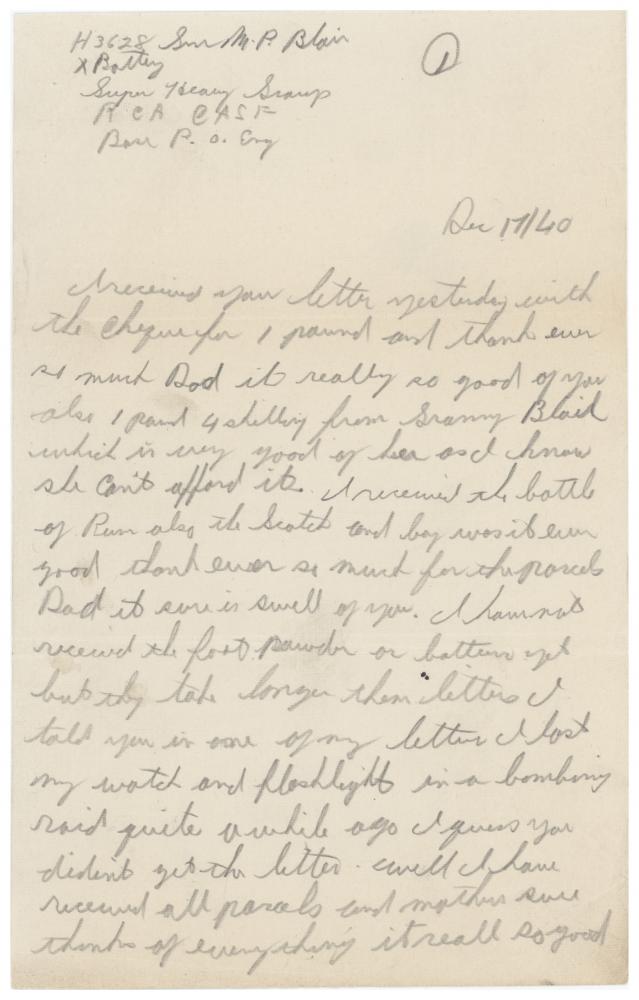 H3628 Gnr M. P. Blair
X Battery
Super Heavy Group
R C A C A S F
Base P. O. Eng
1
Dec 17/40
I received your letter yesterday with
the cheque for 1 pound and thank ever
so much Dad it really so good of you
also 1 pound 4 shelling from Granny Blair
which is very good of her as I know
she can't afford it. I received the bottle
of Rum also the Scotch and boy was it ever
good thank ever so much for the parcels
Dad it sure is swell of you. I have not
received the foot powder or battery yet
but they take longer then letters I
told you in one of my letters I lost
my watch and flashlight in a bombing
raid quite a while ago I guess you
dident get the letter. well I have
received all parcels and mother sure
thinks of everything it reall so good